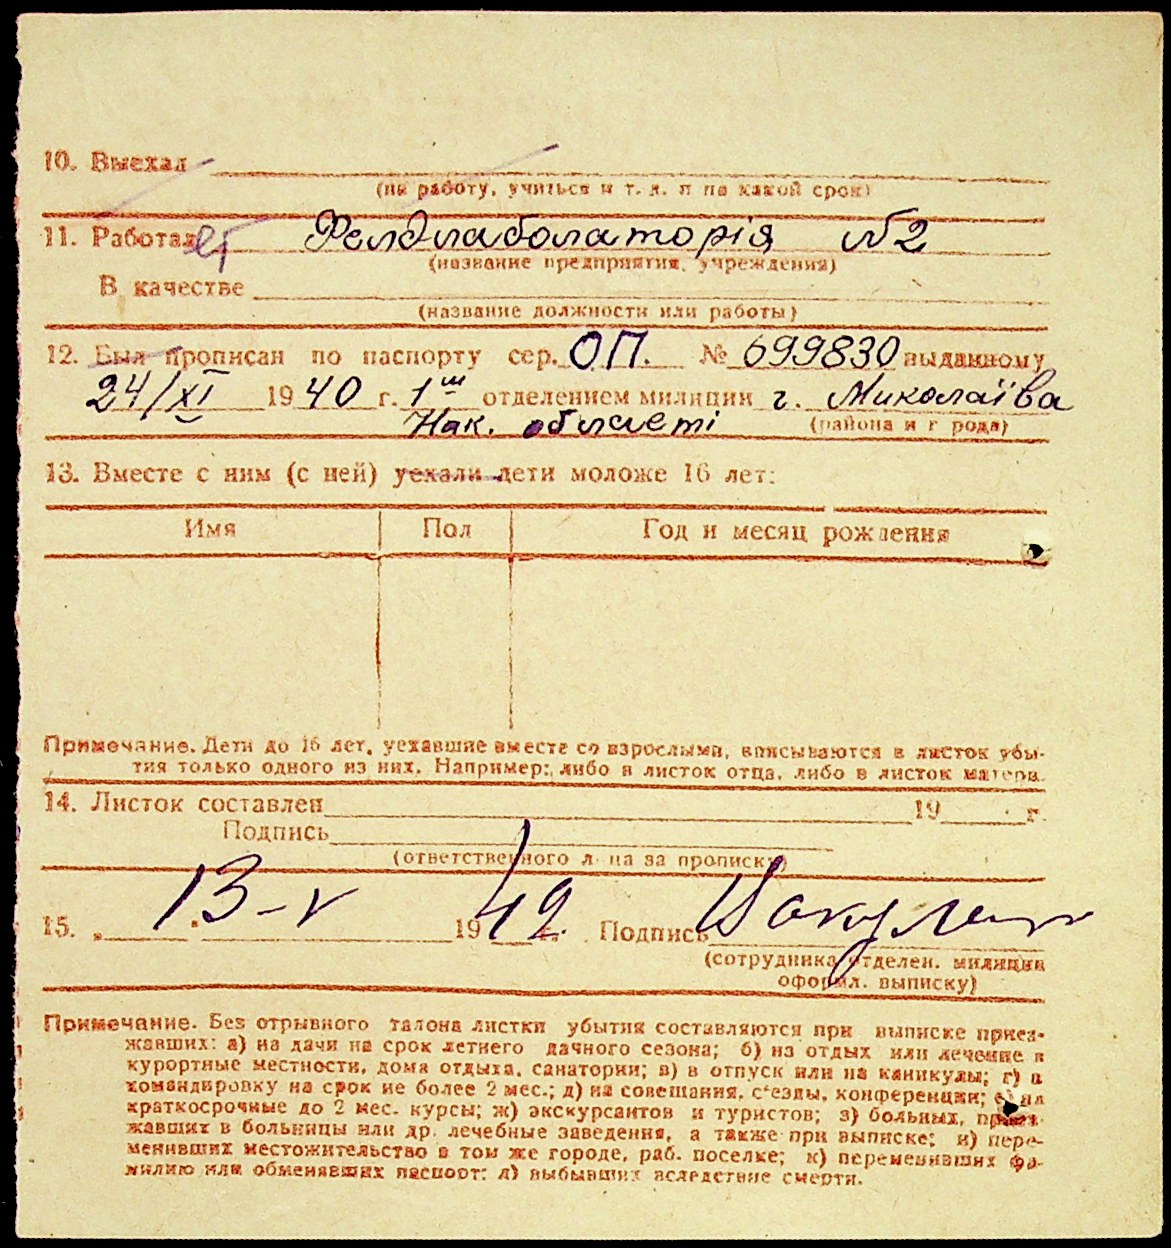 10. Выехал
(на работу, учиться и т. д. и на какой срок)
11. Работает Фелдлаболаторія №2
(название предприятия, учреждения)
В качестве
(название должности или работы)
12. Был прописан по паспорту сер. ОП. № 699830 выданному
24/XI 1940 г. 1ш отделением милиции г. Миколаїва
Ник. области (района и города)
13. Вместе с ним (с ней) уехали дети моложе 16 лет:
Имя Пол Год и месяц рождения
Примечание. Дети до 16 лет, уехавшие вместе со взрослыми, вписываются в листок убы-
тия только одного из них. Например: либо в листок отца, либо в листок матери.
14. Листок составлен 19 г.
Подпись
(ответственного лица за прописку)
15. 13-V 1942 г. Подпись
(сотрудника отделен. милиции
оформл. выписку)
Примечание. Без отрывного талона листки убытия составляются при выписке приез-
жавших: а) на дачи на срок летнего дачного сезона; б) на отдых или лечение в
курортные местности, дома отдыха, санатории; в) в отпуск или на каникулы; г) в
командировку на срок не более 2 мес.; д) на совещания, с'езды, конференции; е) на
краткосрочные до 2 мес. курсы; ж) экскурсантов и туристов; з) больных, приез-
жавших в больницы или др. лечебные заведения, а также при выписке; и) пере-
менивших местожительство в том же городе, раб. поселке; к) переменивших фа-
милию или обменявших паспорт; л) выбывших вследствие смерти.